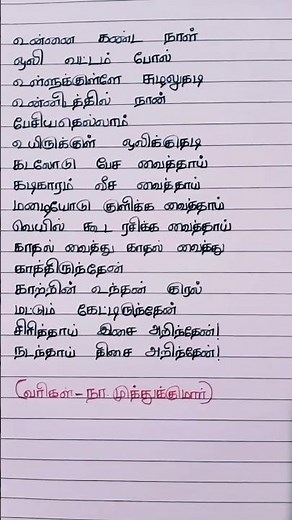 உன்னை கண்ட நாள்
ஒளி வட்டம் போல்
உள்ளுக்குள்ளே சுழலுதடி
உன்னிடத்தில் நான்
பேசியதெல்லாம்
உயிருக்குள் ஒலிக்குதடி
கடலோடு பேச வைத்தாய்
கடிகாரம் வீச வைத்தாய்
மழையோடு குளிக்க வைத்தாய்
வெயில் கூட ரசிக்க வைத்தாய்
காதல் வைத்து காதல் வைத்து
காத்திருந்தேன்
காற்றின் உந்தன் குரல்
மட்டும் கேட்டிருந்தேன்
சிரித்தாய் இசை அறிந்தேன்!
நடந்தாய் திசை அறிந்தேன்!
(வரிகள் - நா. முத்துக்குமார்)